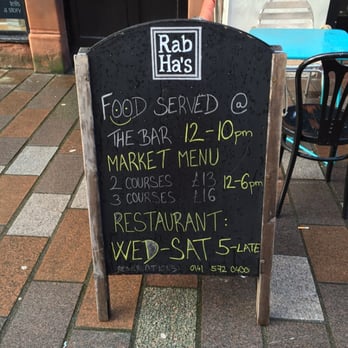 tells
a story
Rab
Ha's
FOOD SERVED @
THE BAR 12-10pm
MARKET MENU
2 COURSES £13 12-6pm
3 COURSES £16
RESTAURANT:
WED-SAT 5-LATE
RESERVATIONS: 0141 572 0400